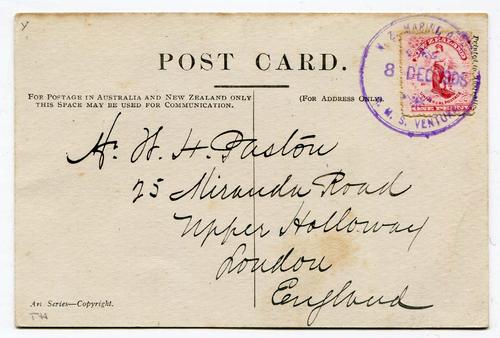 POST CARD.
FOR POSTAGE IN AUSTRALIA AND NEW ZEALAND ONLY
THIS SPACE MAY BE USED FOR COMMUNICATION.
(FOR ADDRESS ONLY).
N.Z. MARINE P.O.
8 DEC 1905
M.S. VENTURA
ZEALAND
ONE PENNY
Printed in
H. W. H. Paston
25 Miranda Road
Upper Holloway
London
England
Art Series—Copyright.